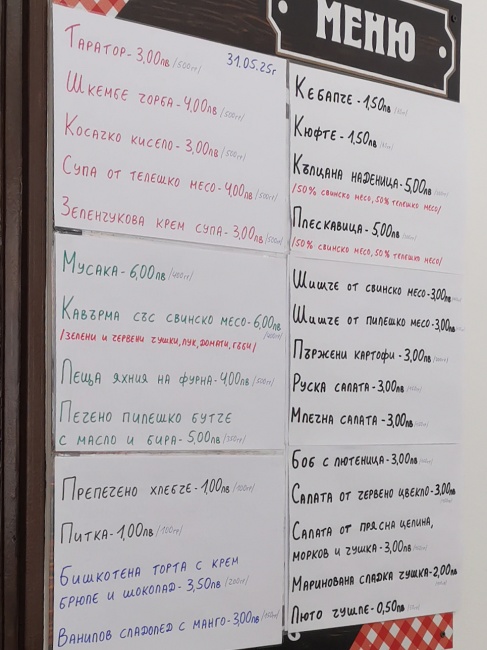 МЕНЮ
31.05.25г
Таратор - 3,00лв /500гг/
Шкембе чорба - 4,00лв /500гг/
Косачко кисело - 3,00лв /500гг/
Супа от телешко месо - 4,00лв /500гг/
Зеленчукова крем супа - 3,00лв /500гг/
Мусака - 6,00лв /400гг/
Кавърма със свинско месо - 6,00лв
/400гг/
/зелени и червени чушки, лук, домати, гъби/
Леща яхния на фурна - 4,00лв /500гг/
Печено пилешко бутче
с масло и бира - 5,00лв /250гг/
Препечено хлебче - 1,00лв /100гг/
Питка - 1,00лв /100гг/
Бишкотена торта с крем
брюле и шоколад - 3,50лв /200гг/
Ванилов сладолед с манго - 3,00лв
Кебапче - 1,50лв
Кюфте - 1,50лв
Кълцана наденица - 5,00лв
/50% свинско месо, 50% телешко месо/
Плескавица - 5,00лв
/50% свинско месо, 50% телешко месо/
Шишче от свинско месо - 3,00лв
Шишче от пилешко месо - 3,00лв
Пържени картофи - 3,00лв
Руска салата - 3,00лв
Млечна салата - 3,00лв
Боб с лютеница - 3,00лв
Салата от червено цвекло - 3,00лв
Салата от прясна целина,
морков и чушка - 3,00лв
Маринована сладка чушка - 2,00лв
Люто чушле - 0,50лв